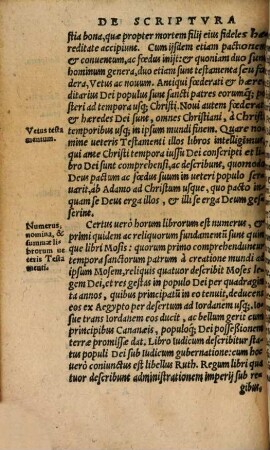 DE SCRIPTVRA
stia bona, quæ propter mortem filij eius fideles hæ-
reditate accipiunt. Cum ijsdem etiam pactionem
& conuentum, ac fœdus inijt: & quoniam duo sunt
hominum genera, duo etiam sunt testamenta seu fœ
dera, Vetus ac nouum. Antiqui fœderati & hære
ditarius Dei populus sunt sancti patres eorumq; po
steri ad tempora usq; Christi. Noui autem fœderati
& hæredes Dei sunt, omnes Christiani, à Christi
temporibus usq; in ipsum mundi finem. Quare no
Vetus testa
mentum.
mine ueteris Testamenti illos libros intelligimus,
qui ante Christi tempora iussu Dei conscripti et li
bro Dei sunt comprehensi, ac describunt, quomodo
Deus pactum ac fœdus suum in ueteri populo ser
uarit, ab Adamo ad Christum usque, quo pacto in
quam se Deus erga illos, & illi se erga Deum ges
serint.
Numerus,
nomina, &
summæ li
brorum ue
teris Testa
menti.
Certus uerò horum librorum est numerus, &
primi quidem ac reliquorum fundamenti sunt quin
que libri Mosis: quorum primo comprehenduntur
tempora sanctorum patrum à creatione mundi ad
ipsum Mosem, reliquis quatuor describit Moses le
gem Dei, et res gestas in populo Dei per quadragin
ta annos, quibus principatũ in eo tenuit, deducens
eos ex Aegypto per desertum ad Iordanem usq;: Io
sue trans Iordanem eos ducit, ac bellum gerit cum
principibus Cananæis, populoq; Dei possessionem
terræ promissæ dat, Libro Iudicum describitur sta
tus populi Dei sub Iudicum gubernatione: cum hoc
uerò coniunctus est libellus Ruth. Regum libri qua
tuor describunt administrationem imperij sub re
gibus,